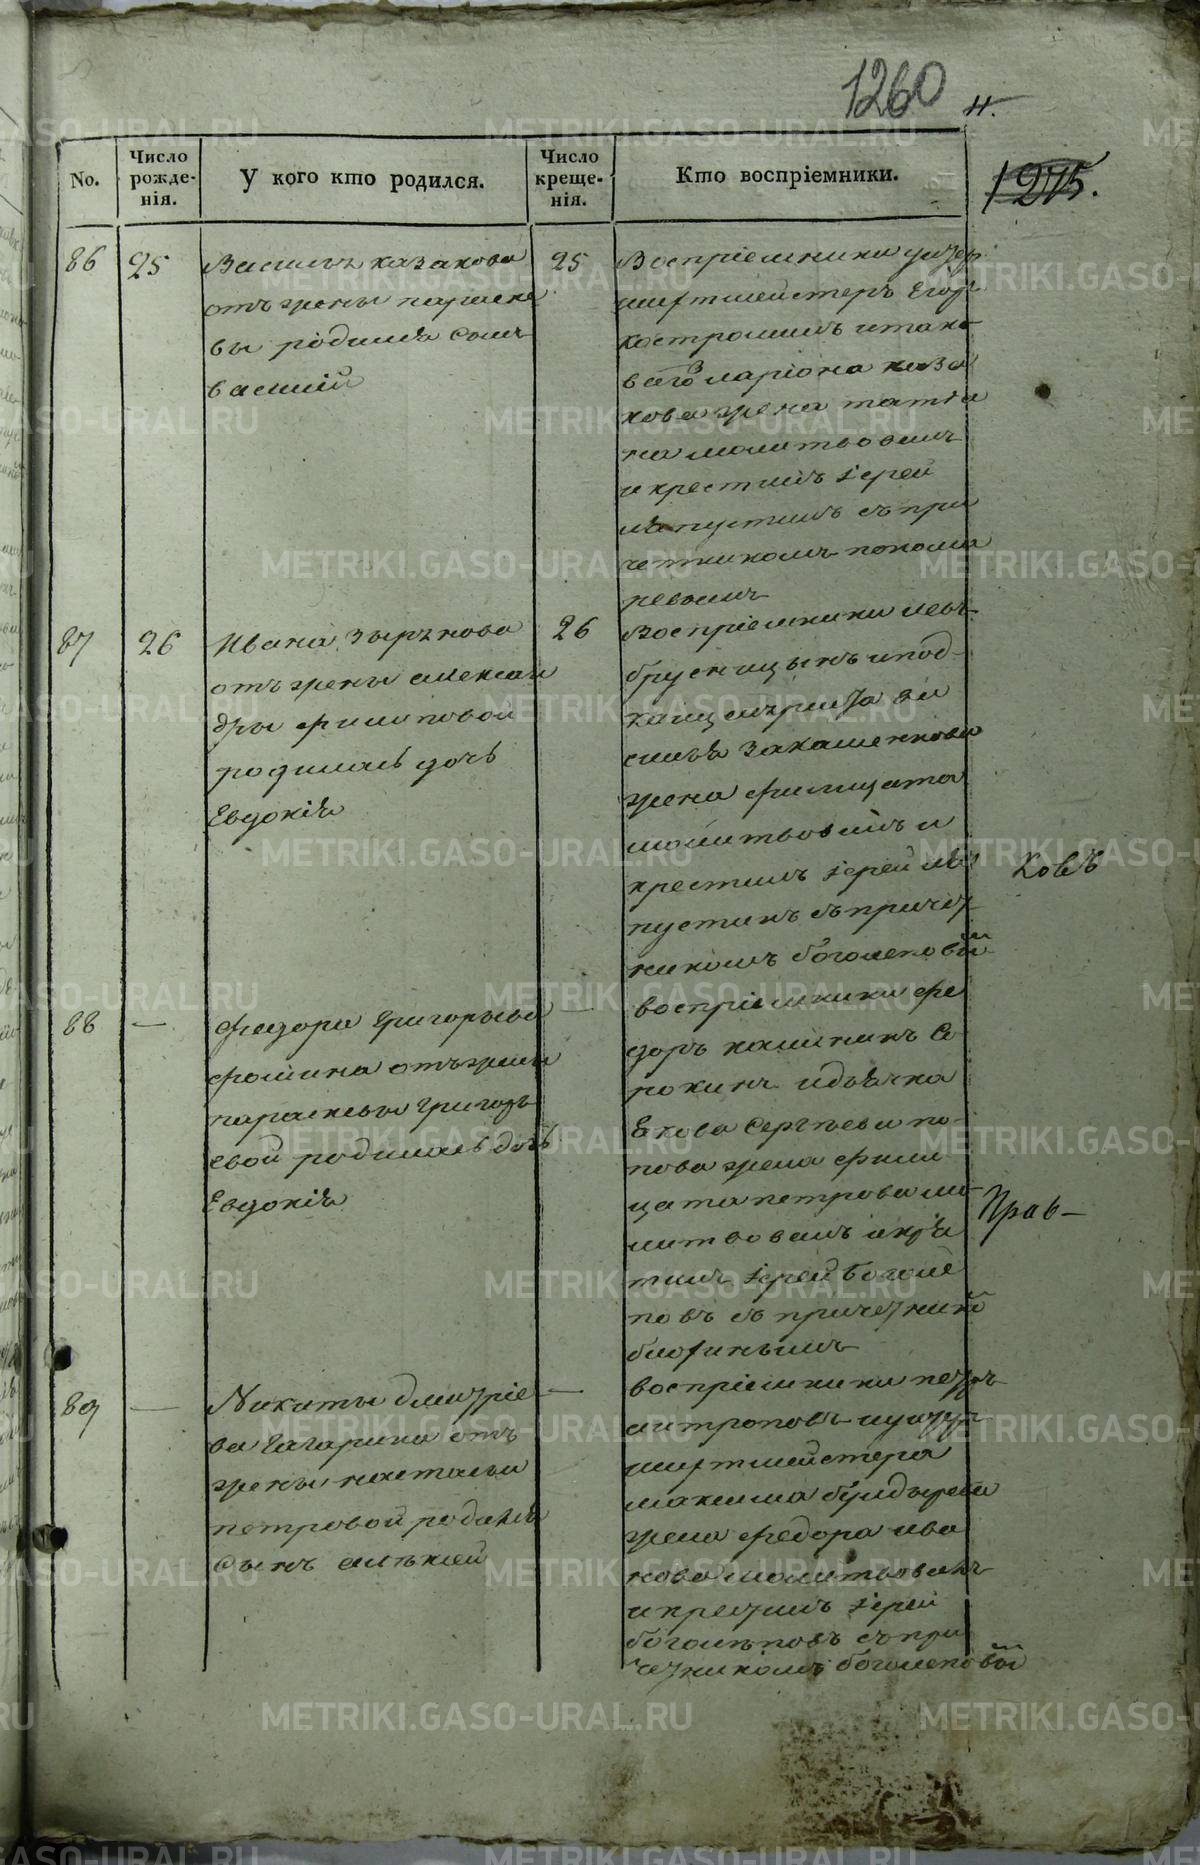 1260
н.
1275.
No.
Число рожде-нія.
У кого кто родился.
Число креще-нія.
Кто воспріемники.
86
25
Василья казакова
отъ жены параске
вы родился сынъ
василій
25
Воспріемники унтер
шихтмейстеръ Егор
костроминъ и тако
ваго ж ларіона каза
кова жена татіа
на молитвовалъ
и крестилъ іерей
лапустинъ съ при
четникомъ понома
ревымъ
87
26
Ивана зырянова
отъ жены алексан
дры филиповой
родилась дочь
Евдокія
26
Воспріемники левъ
брусницынъ и под
канцеляриста ва
силья закаменнова
жена филицата
молитвовалъ и
крестилъ іерей ла
пустинъ съ причет
никомъ боголеповым
88
—
Федора Григорьева
фомина отъ жены
параскевы григорь
евой родилась дочь
Евдокія
—
воспріемники фе
доръ калинин со
рокинъ и дьячка
Якова Сергѣева по-
пова жена фили
цата петрова мо
литвовалъ и крес
тилъ іерей боголе
повъ съ причетнико
89
—
Никиты дмитріе
ва гагарина отъ
жены наталии
петровой родился
сынъ алексей
—
воспріемники петръ
митроповъ и унтер
шихтмейстера
максима
жена федора ива
нова молитвовалъ
и крестилъ іерей
боголѣповъ съ при
четникомъ боголеповым
ковъ
Прав—
METRIKI.GASO-URAL.RU